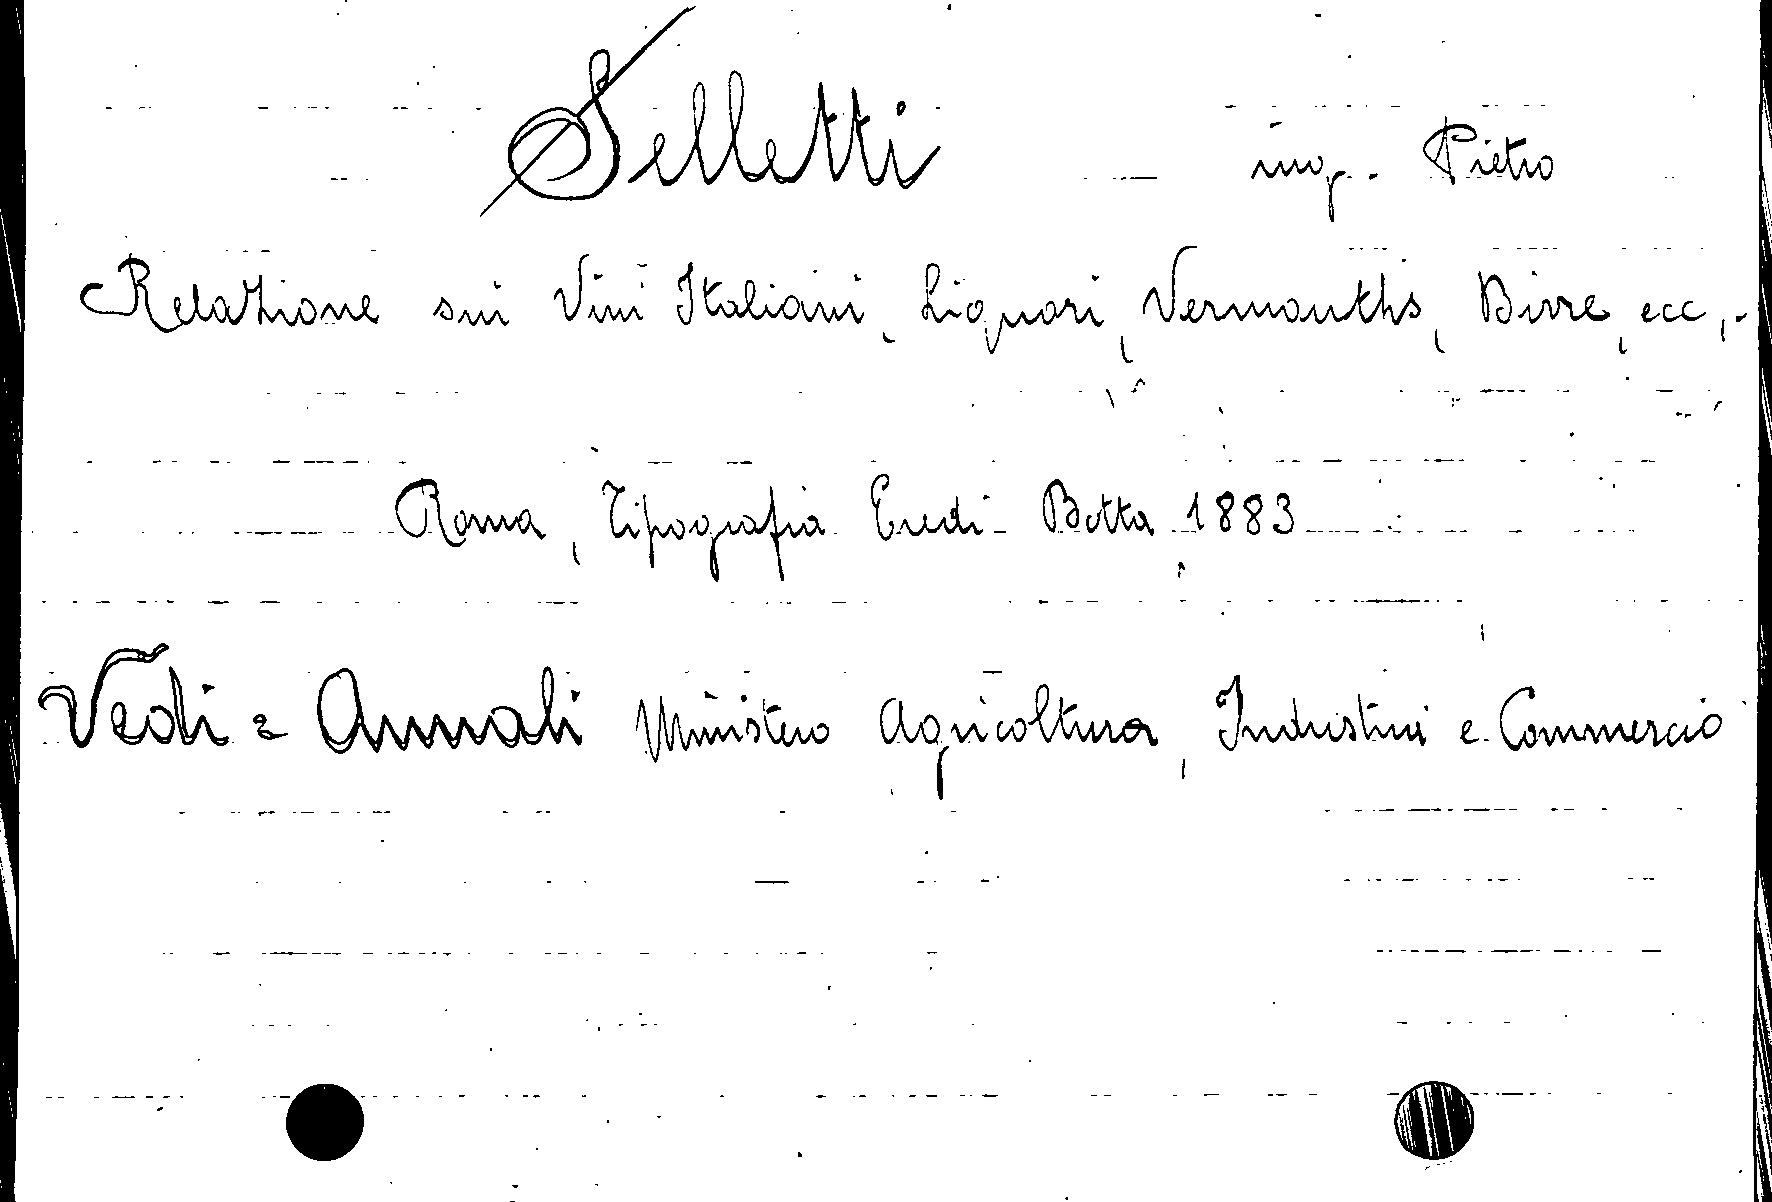 Selletti ing. Pietro
Relazione sui Vini Italiani, Liquori, Vermouths, Birre, ecc.,
Roma, Tipografia Eredi Botta 1883
Vedi = Annali Ministero Agricoltura, Industria e Commercio